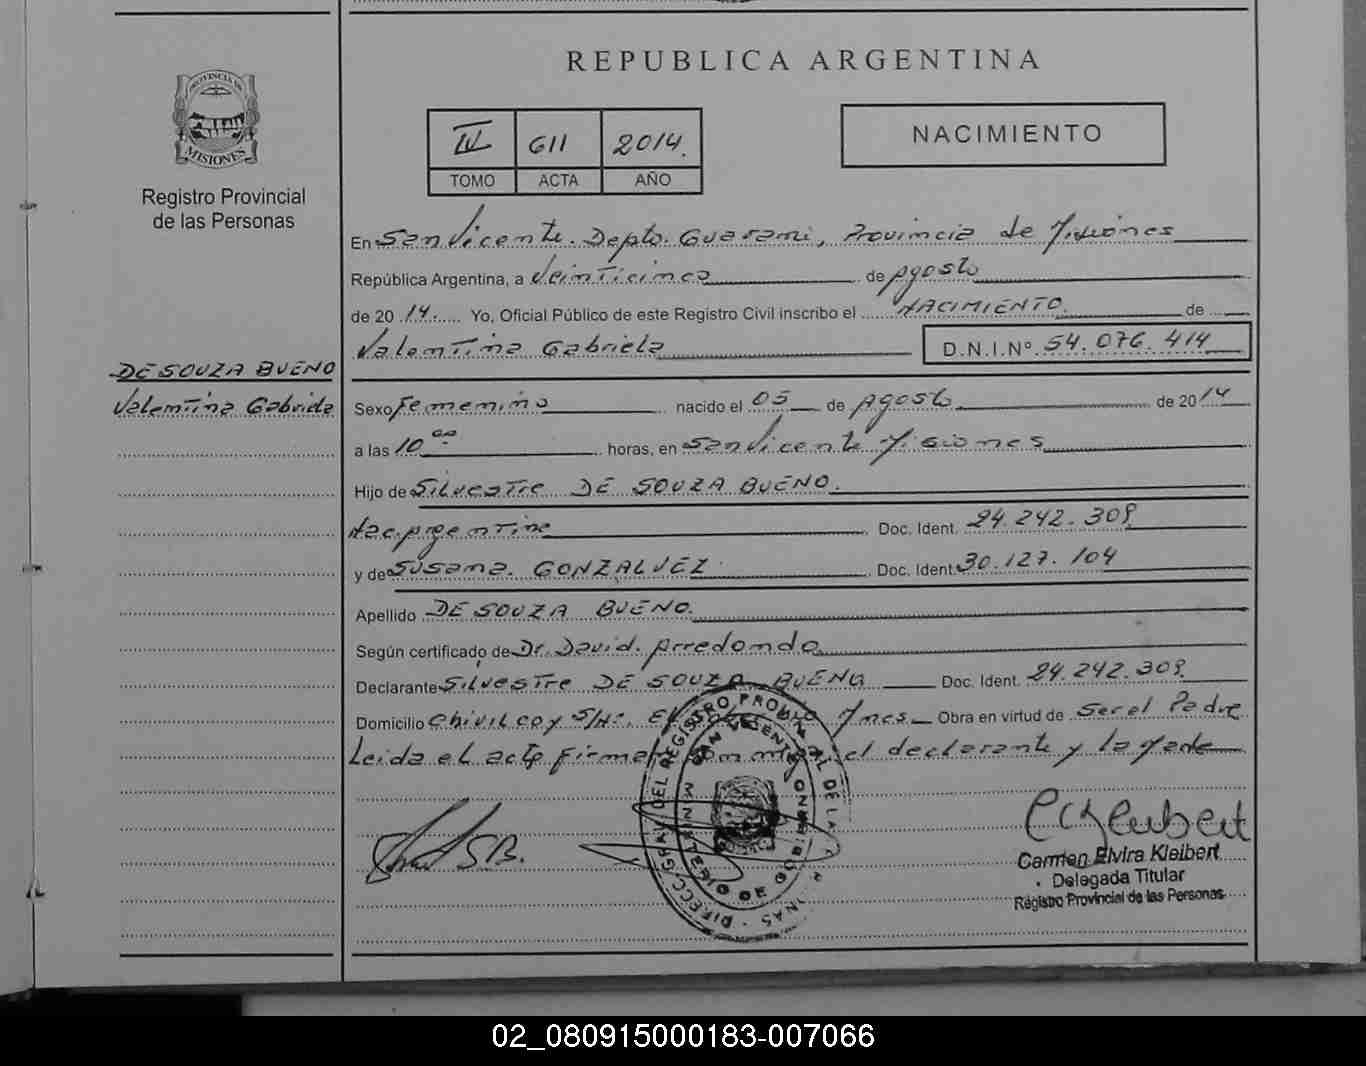 PROVINCIA DE
MISIONES
Registro Provincial
de las Personas
DE SOUZA BUENO
Valentina Gabriela
REPUBLICA ARGENTINA
IV 611 2014.
TOMO ACTA AÑO
NACIMIENTO
En San Vicente. Depto. Guarani, Provincia de Misiones
República Argentina, a Veinticinco de Agosto
de 20 14. Yo, Oficial Público de este Registro Civil inscribo el NACIMIENTO. de
Valentina Gabriela D.N.I.Nº 54.076.414
Sexo Femenino nacido el 05 de Agosto de 2014
a las 10 00 horas, en San Vicente Misiones
Hijo de Silvestre DE SOUZA BUENO.
Nac. Argentina Doc. Ident. 24.242.309
y de Susana. GONZALVEZ. Doc. Ident. 30.127.104
Apellido DE SOUZA BUENO.
Según certificado de Dr. David. Arredondo
Declarante Silvestre DE SOUZA BUENO Doc. Ident. 24.242.309.
Domicilio Chivilcoy S/Nº. Mnes. Obra en virtud de Ser el Padre
Leida el acta firman el declarante y la
S.B.
Carmen Elvira Kleibert
Delegada Titular
Registro Provincial de las Personas
02_080915000183-007066